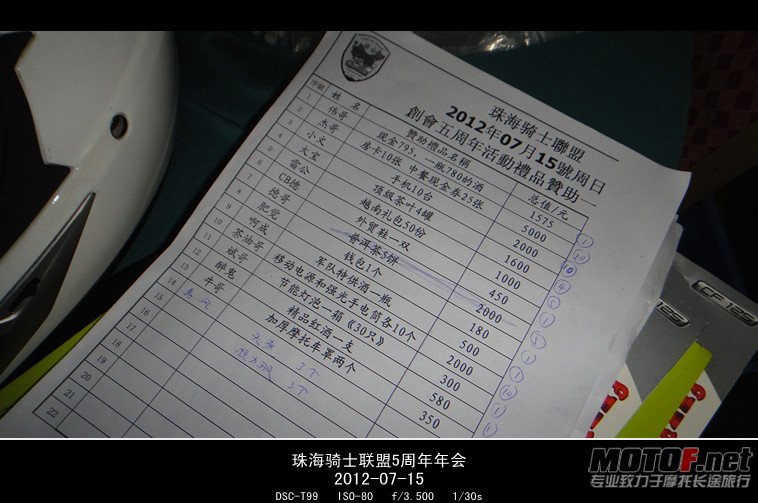 珠海骑士聯盟
2012年07月15號周日
創會五周年活動禮品贊助
序號 姓 名 贊助禮品名稱 总值/元
1 伟哥 现金795，一瓶780的酒 1575
2 杰哥 摩卡10张 中餐现金券25张 5000
3 小文 手机10台 2000
4 大宝 顶级茶叶4罐 1600
5 雷公 越南礼包50份 1000
6 CB德 外贸鞋一双 450
7 德哥 普洱茶5饼 2000
8 肥觉 钱包1个 180
9 啊成 军队特供酒一瓶 500
10 茶油哥 移动电源和强光手电筒各10个 2000
11 斌哥 节能灯泡一箱《30只》 300
12 醉鬼 精品红酒一支 580
13 牛哥 加厚摩托车罩两个 350
14
15
16
17
18
19
20
21
22
CP125
珠海骑士联盟5周年年会
2012-07-15
DSC-T99 ISO-80 f/3.500 1/30s
MOTOF.net
专业致力于摩托长途旅行